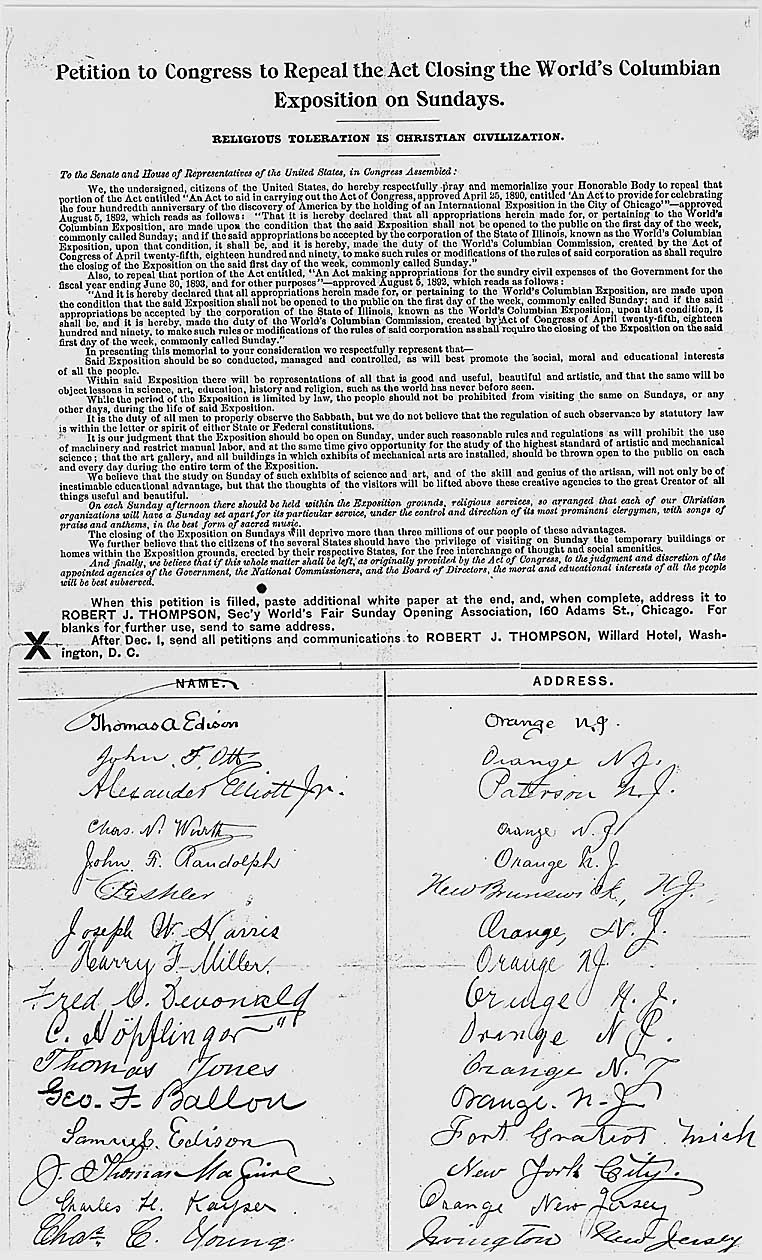 Petition to Congress to Repeal the Act Closing the World's Columbian
Exposition on Sundays.
RELIGIOUS TOLERATION IS CHRISTIAN CIVILIZATION.
To the Senate and House of Representatives of the United States, in Congress Assembled:
We, the undersigned, citizens of the United States, do hereby respectfully pray and memorialize your Honorable Body to repeal that
portion of the Act entitled "An Act to aid in carrying out the Act of Congress, approved April 25, 1890, entitled 'An Act to provide for celebrating
the four hundredth anniversary of the discovery of America by the holding of an International Exposition in the City of Chicago'"—approved
August 5, 1892, which reads as follows: "That it is hereby declared that all appropriations herein made for, or pertaining to the World's
Columbian Exposition, are made upon the condition that the said Exposition shall not be opened to the public on the first day of the week,
commonly called Sunday; and if the said appropriations be accepted by the corporation of the State of Illinois, known as the World's Columbian
Exposition, upon that condition, it shall be, and it is hereby, made the duty of the World's Columbian Commission, created by the Act of
Congress of April twenty-fifth, eighteen hundred and ninety, to make such rules or modifications of the rules of said corporation as shall require
the closing of the Exposition on the said first day of the week, commonly called Sunday."
Also, to repeal that portion of the Act entitled, "An Act making appropriations for the sundry civil expenses of the Government for the
fiscal year ending June 30, 1893, and for other purposes"—approved August 5, 1892, which reads as follows:
"And it is hereby declared that all appropriations herein made for, or pertaining to the World's Columbian Exposition, are made upon
the condition that the said Exposition shall not be opened to the public on the first day of the week, commonly called Sunday; and if the said
appropriations be accepted by the corporation of the State of Illinois, known as the World's Columbian Exposition, upon that condition, it
shall be, and it is hereby, made the duty of the World's Columbian Commission, created by Act of Congress of April twenty-fifth, eighteen
hundred and ninety, to make such rules or modifications of the rules of said corporation as shall require the closing of the Exposition on the said
first day of the week, commonly called Sunday."
In presenting this memorial to your consideration we respectfully represent that—
Said Exposition should be so conducted, managed and controlled, as will best promote the social, moral and educational interests
of all the people.
Within said Exposition there will be representations of all that is good and useful, beautiful and artistic, and that the same will be
object lessons in science, art, education, history and religion, such as the world has never before seen.
While the period of the Exposition is limited by law, the people should not be prohibited from visiting the same on Sundays, or any
other days, during the life of said Exposition.
It is the duty of all men to properly observe the Sabbath, but we do not believe that the regulation of such observance by statutory law
is within the letter or spirit of either State or Federal constitutions.
It is our judgment that the Exposition should be open on Sunday, under such reasonable rules and regulations as will prohibit the use
of machinery and restrict manual labor, and at the same time give opportunity for the study of the highest standard of artistic and mechanical
science; that the art gallery, and all buildings in which exhibits of mechanical arts are installed, should be thrown open to the public on each
and every day during the entire term of the Exposition.
We believe that the study on Sunday of such exhibits of science and art, and of the skill and genius of the artisan, will not only be of
inestimable educational advantage, but that the thoughts of the visitors will be lifted above these creative agencies to the great Creator of all
things useful and beautiful.
On each Sunday afternoon there should be held within the Exposition grounds, religious services, so arranged that each of our Christian
organizations will have a Sunday set apart for its particular service, under the control and direction of its most prominent clergymen, with songs of
praise and anthems, in the best form of sacred music.
The closing of the Exposition on Sundays will deprive more than three millions of our people of these advantages.
We further believe that the citizens of the several States should have the privilege of visiting on Sunday the temporary buildings or
homes within the Exposition grounds, erected by their respective States, for the free interchange of thought and social amenities.
And finally, we believe that if this whole matter shall be left, as originally provided by the Act of Congress, to the judgment and discretion of the
appointed agencies of the Government, the National Commissioners, and the Board of Directors, the moral and educational interests of all the people
will be best subserved.
When this petition is filled, paste additional white paper at the end, and, when complete, address it to
ROBERT J. THOMPSON, Sec'y World's Fair Sunday Opening Association, 160 Adams St., Chicago. For
blanks for further use, send to same address.
After Dec. 1, send all petitions and communications to ROBERT J. THOMPSON, Willard Hotel, Wash-
X ington, D. C.
NAME. ADDRESS.
Thomas A Edison Orange N.J.
John F. Ott Orange N.J.
Alexander Elliott Jr. Paterson N.J.
Chas. N. Wurth Orange N.J.
John F. Randolph Orange N.J.
New Brunswick, N.J.
Joseph W. Harris Orange, N.J.
Harry F. Miller. Orange NJ
Fred C. Devonald Orange N.J.
C. Höpflinger " Orange N.J.
Thomas Jones Orange N.J.
Geo. F. Ballou Orange. N-J
Samuel Edison Fort Gratiot Mich
J. Thomas Maguire New York City.
Charles H. Kayser. Orange New Jersey
Chas. C. Young Irvington New Jersey